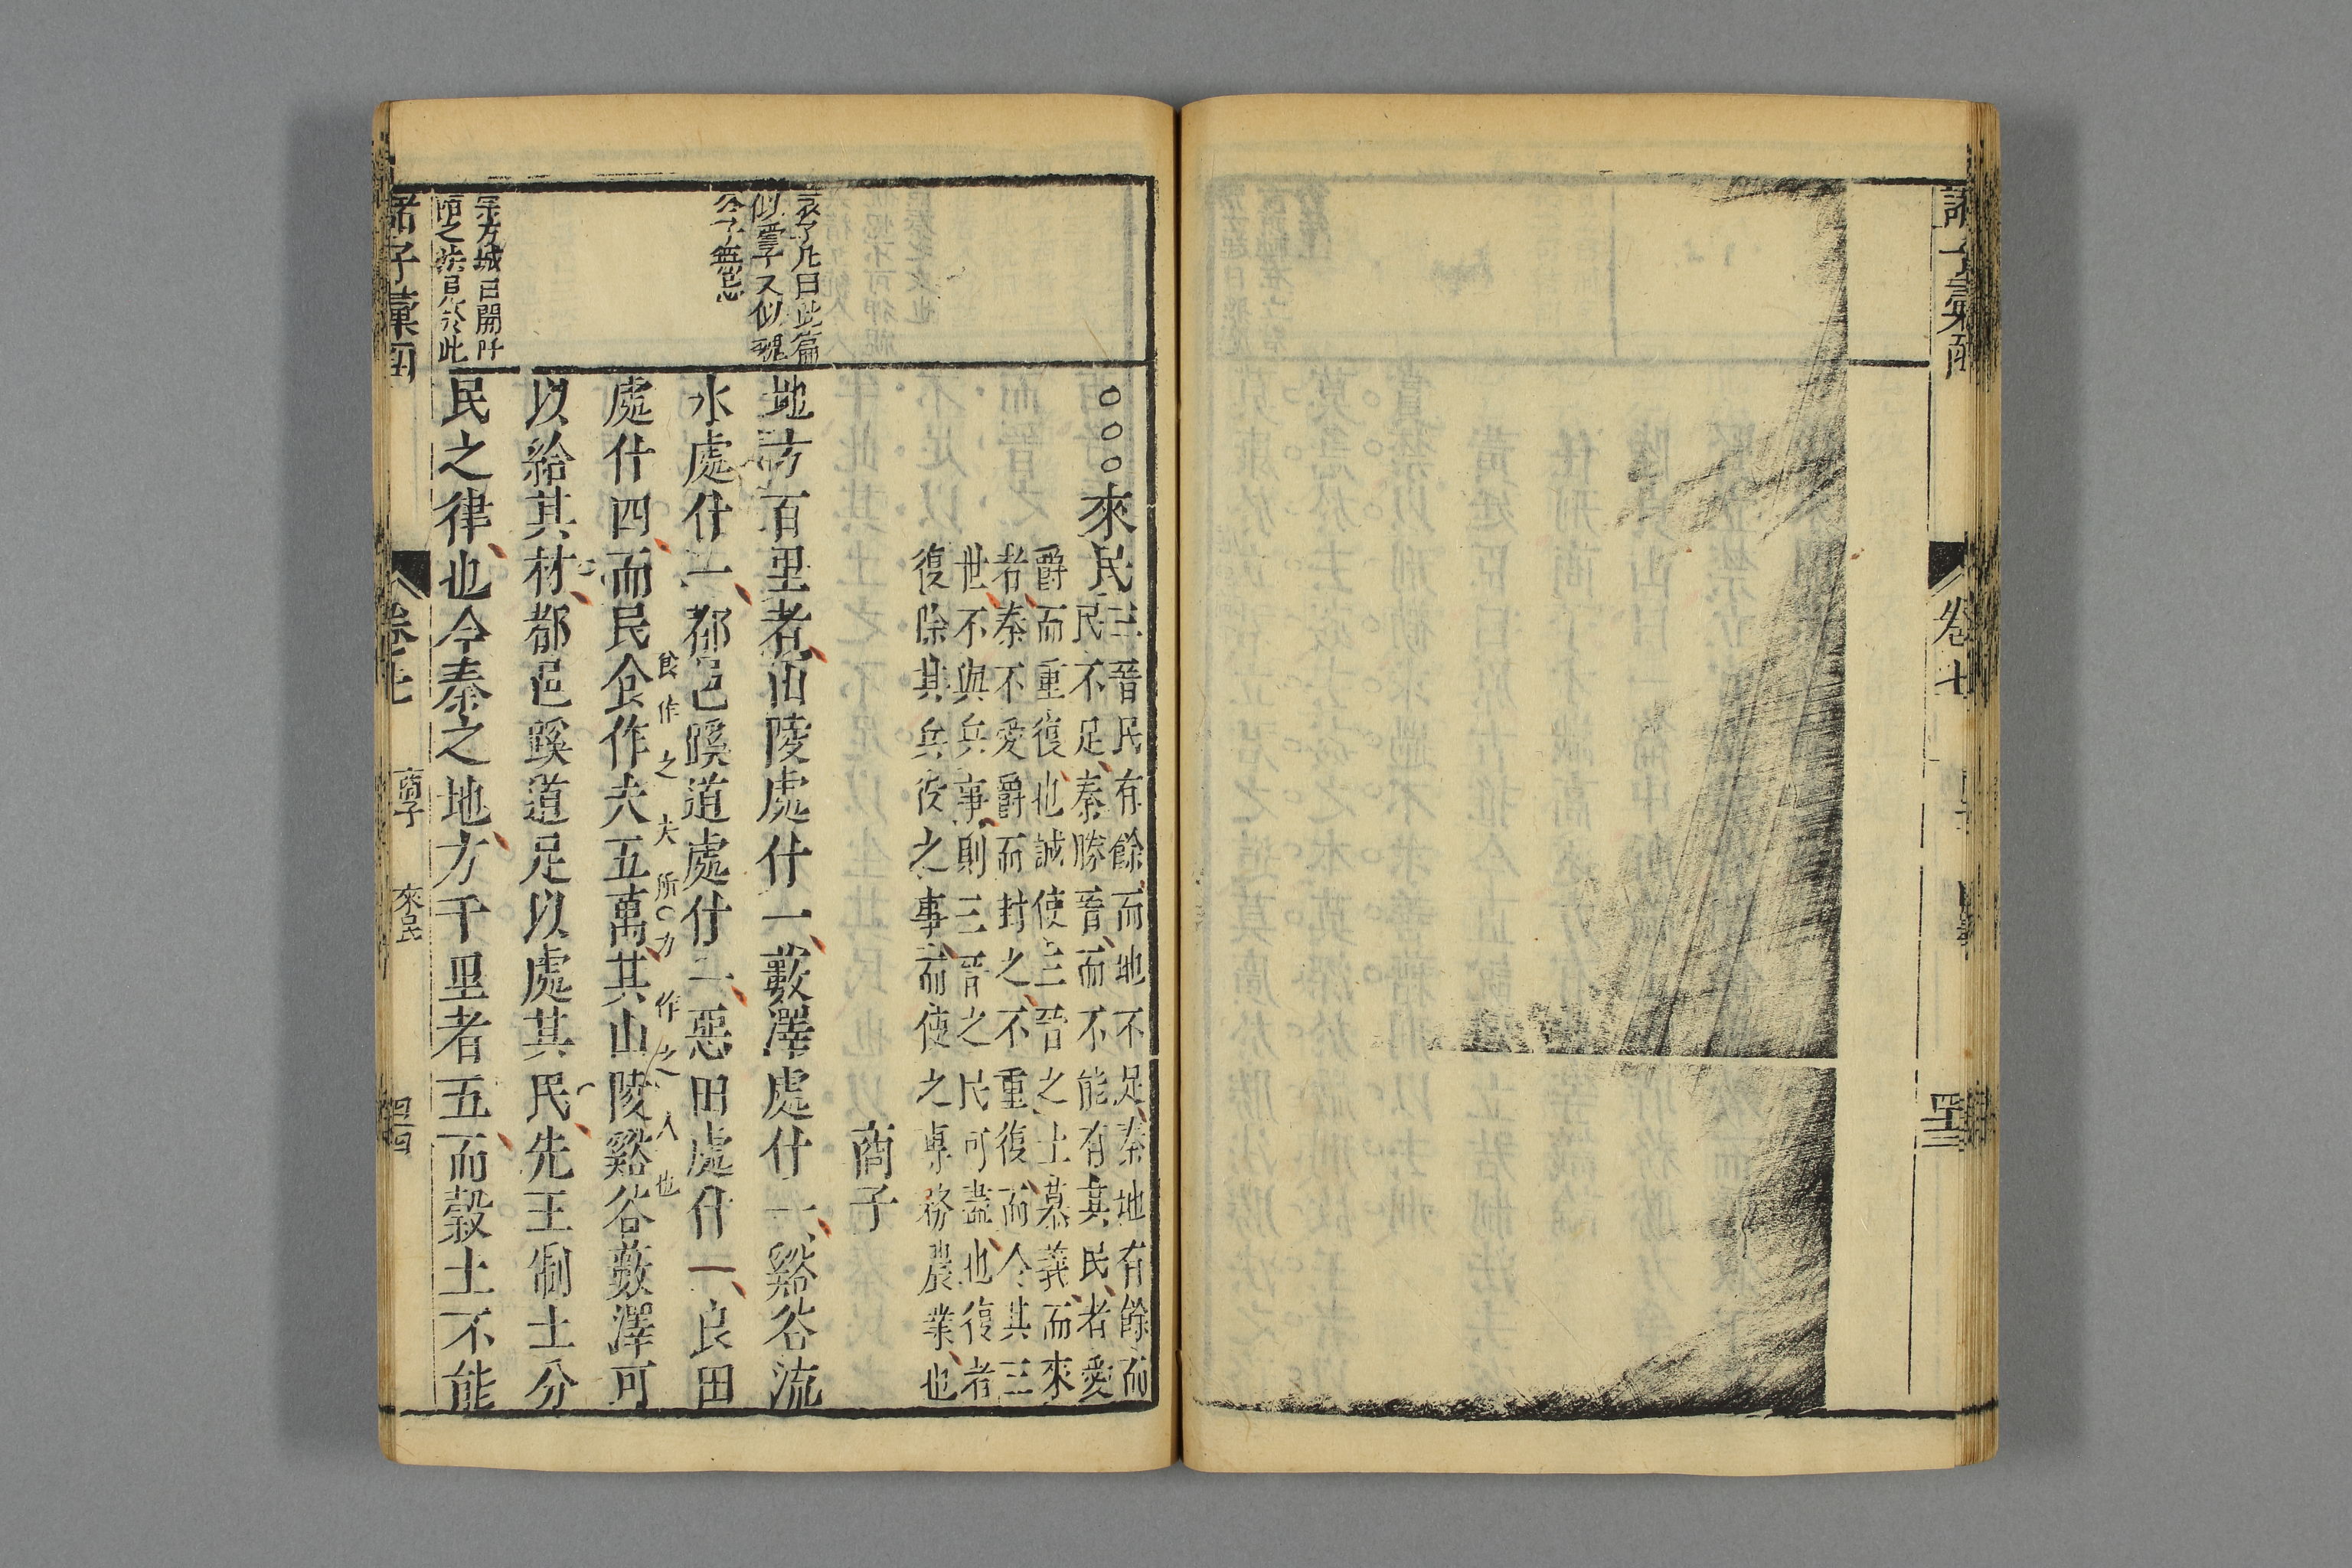 卷七
來民
三晉民有餘而地不足秦地有餘而
民不足秦勝晉而不能有其民者愛
爵而重復也誠使三晉之士慕義而來
者秦不愛爵而封之不重復而令其三
世不與兵事則三晉之民可盡也復者
復除其兵役之事而使之專務農業也
商子
袁了凡曰此篇
似管子又似魏
公子無忌
地方百里者山陵處什一藪澤處什一谿谷流
水處什一都邑蹊道處什二惡田處什一良田
處什四而民食作夫五萬其山陵谿谷藪澤可
食作之夫所力作之人也
以給其材都邑蹊道足以處其民先王制土分
宗方城曰開阡
陌之法見於此
民之律也今秦之地方千里者五而穀土不能
諸子彙函
卷七
商子
來民
四四